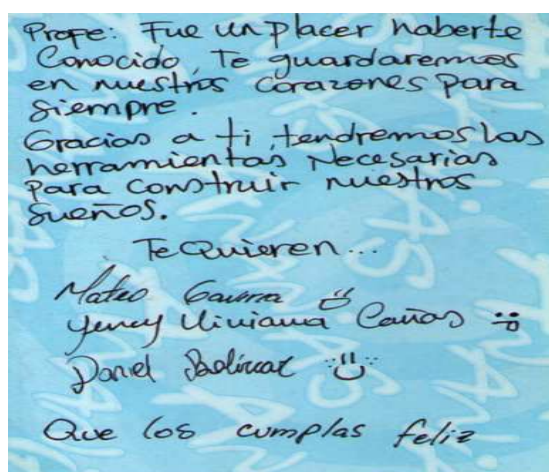 Profe: Fue un placer haberte
Conocido, Te guardaremos
en nuestros corazones para
siempre.
Gracias a ti, tendremos las
herramientas Necesarias
Para Construir nuestros
sueños.
Te Quieren...
Mateo
Yency Viviana Cañas
Daniel Bolívar
Que los cumplas feliz